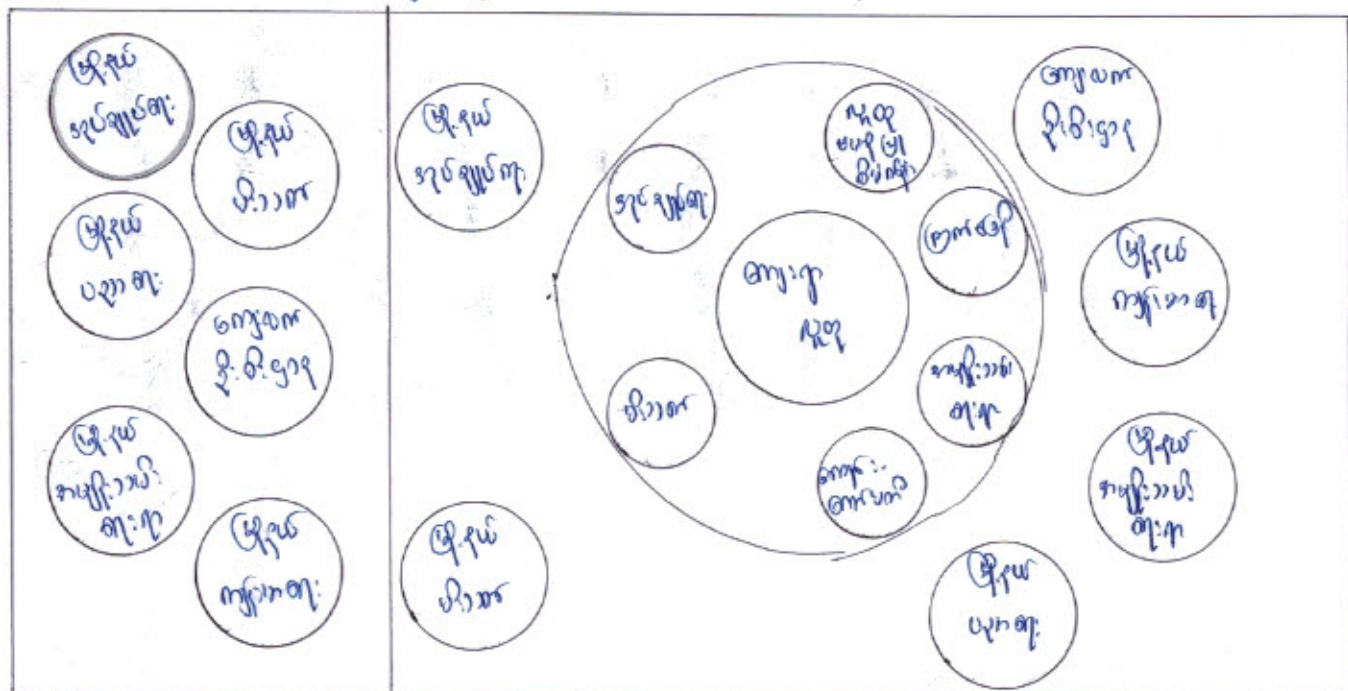 မြို့နယ်
အုပ်ချုပ်ရေး
မြို့နယ်
မီးသတ်
မြို့နယ်
ပညာရေး
ကျေးလက်
ဦးစီးဌာန
မြို့နယ်
အမျိုးသမီး
ရေးရာ
မြို့နယ်
ကျန်းမာရေး
မြို့နယ်
အုပ်ချုပ်ရေး
မြို့နယ်
မီးသတ်
အုပ်ချုပ်ရေး
မီးသတ်
ကျေးရွာ
လူထု
လူထု
ကြက်ခြေနီ
အမျိုးသမီး
ရေးရာ
ကျေးလက်
ဦးစီးဌာန
မြို့နယ်
ကျန်းမာရေး
မြို့နယ်
အမျိုးသမီး
ရေးရာ
မြို့နယ်
ပညာရေး